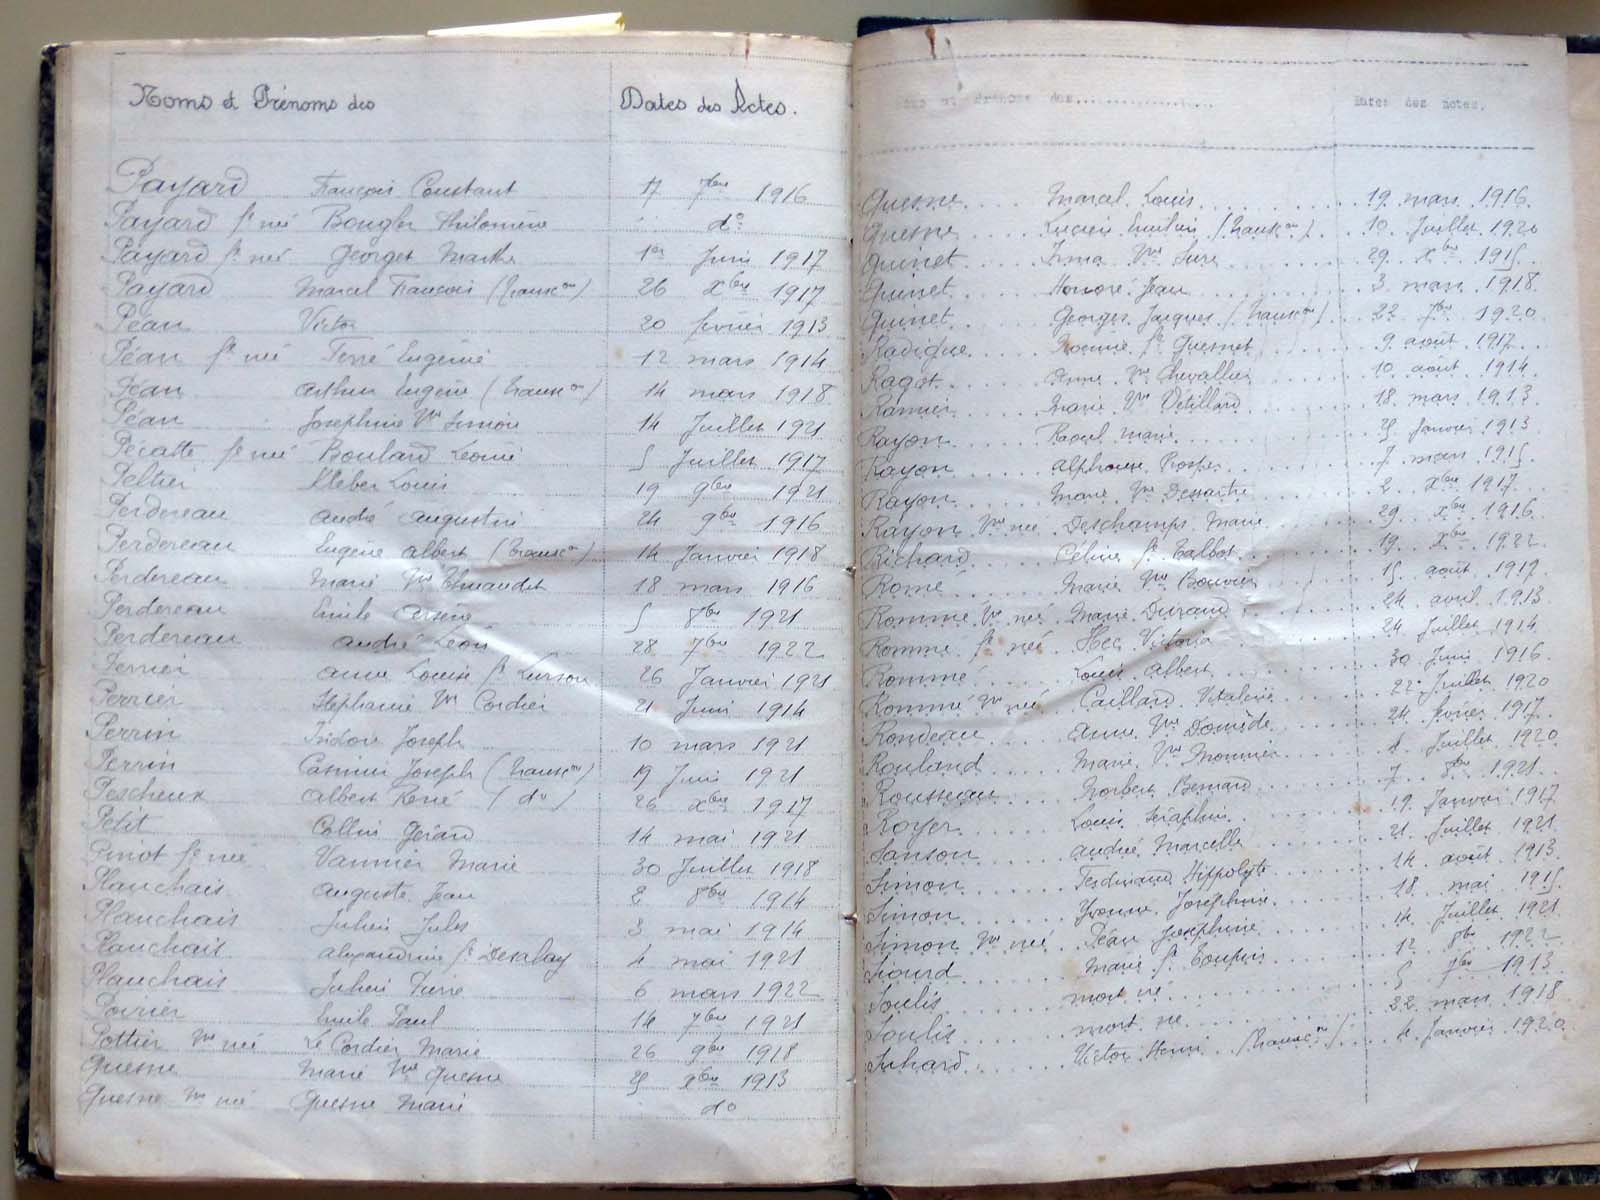 Noms et Prénoms des Dates des Actes.
Payard François Constant 17 7bre 1916
Payard fe née Bougler Philomène d°
Payard fe née Georget Marthe 1er Juin 1917
Payard Marcel François (transcon) 26 Xbre 1917
Péan Victor 20 février 1913
Péan fe née Ferré Eugénie 12 mars 1914
Péan Arthur Eugène (transcon) 14 mars 1918
Péan Joséphine Vve Simon 14 Juillet 1921
Pécatte fe née Boulard Léonie 5 Juillet 1917
Peltier Kléber Louis 19 9bre 1921
Perdereau André Augustin 24 9bre 1916
Perdereau Eugène Albert (transcon) 14 Janvier 1918
Perdereau Marie Vve 18 mars 1916
Perdereau Emile Arsène 5 8bre 1921
Perdereau André Léon 28 7bre 1922
Perrier Anne Louise fe 26 Janvier 1921
Perrier Stéphanie Vve Cordier 21 Juin 1914
Perrin Isidore Joseph 10 mars 1921
Perrin Casimir Joseph (transcon) 19 Juin 1921
Pescheux Albert René (d°) 26 Xbre 1917
Petit Collin Gérard 14 mai 1921
Pinot fe née Vannier Marie 30 Juillet 1918
Planchais Auguste Jean 2 8bre 1914
Planchais Julien Jules 3 mai 1914
Planchais Alexandrine fe Desalay 4 mai 1921
Planchais Julien Pierre 6 mars 1922
Poirier Emile Paul 14 7bre 1921
Pottier Vve née Le Cordier Marie 26 9bre 1918
Quesne Marie Vve Quesne 25 Xbre 1913
Quesne Vve née Quesne Marie d°
Prénoms des Dates des notes.
Quesne Marcel Louis 19 mars 1916
Quesne Lucien Emilien (transcon) 10 Juillet 1920
Quinet Irma Vve 29 Xbre 1915
Quinet Honoré Jean 3 mars 1918
Quinet Georges Jacques (transcon) 22 7bre 1920
Radigue fe Quesnet 9 août 1917
Ragot Anne Vve Chevallier 10 août 1914
Ramier Marie Vve Détillard 18 mars 1913
Rayon Raoul Marie 25 Janvier 1913
Rayon Alphonse Prosper 7 mars 1915
Rayon Marie Vve Dessartre 2 Xbre 1917
Rayon Vve née Deschamps Marie 29 Xbre 1916
Richard Céline fe Talbot 19 Xbre 1922
Romé Marie Vve Bouvier 15 août 1917
Rommé Vve née Marie Durand 24 avril 1913
Rommé fe née Hec Victoria 24 Juillet 1914
Rommé Louis Albert 30 Juin 1916
Rommé Vve née Caillard Vitaline 22 Juillet 1920
Rondeau Anne Vve 24 février 1917
Rouland Marie Vve Monnier 1 Juillet 1920
Rousseau Norbert Bernard 7 8bre 1921
Royer Louis Séraphin 19 Janvier 1917
Sanson André Marcelle 21 Juillet 1921
Simon Ferdinand Hippolyte 14 août 1913
Simon Yvonne Joséphine 18 mai 1915
Simon Vve née Péan Joséphine 14 Juillet 1921
Sourd Marie fe Toupin 12 8bre 1922
Soulis mort né 5 7bre 1913
Soulis mort né 22 mars 1918
Suhard Victor Henri (transcon) 4 Janvier 1920